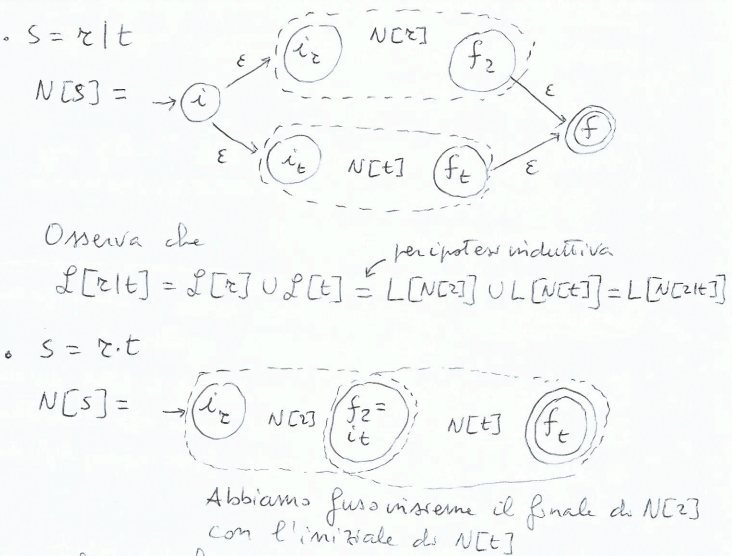 • S = r|t
N[S] = → i ε i_r N[r] f_r ε f
ε i_t N[t] f_t ε
Osserva che
per ipotesi induttiva
L[r|t] = L[r] ∪ L[t] = L[N[r]] ∪ L[N[t]] = L[N[r|t]]
• S = r·t
N[S] = → i_r N[r] f_r = i_t N[t] f_t
Abbiamo fuso insieme il finale di N[r]
con l'iniziale di N[t]